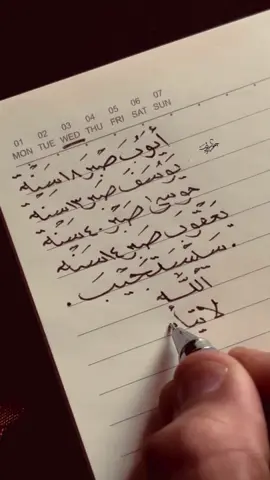 01 02 03 04 05 06 07
MON TUE WED THU FRI SAT SUN
أيوب صبر ١٨ سنة
يوسف صبر ١٣ سنة
موسى صبر ٤٠ سنة
يعقوب صبر ١٤ سنة
. ستستجيب .
الله
لا يتأ